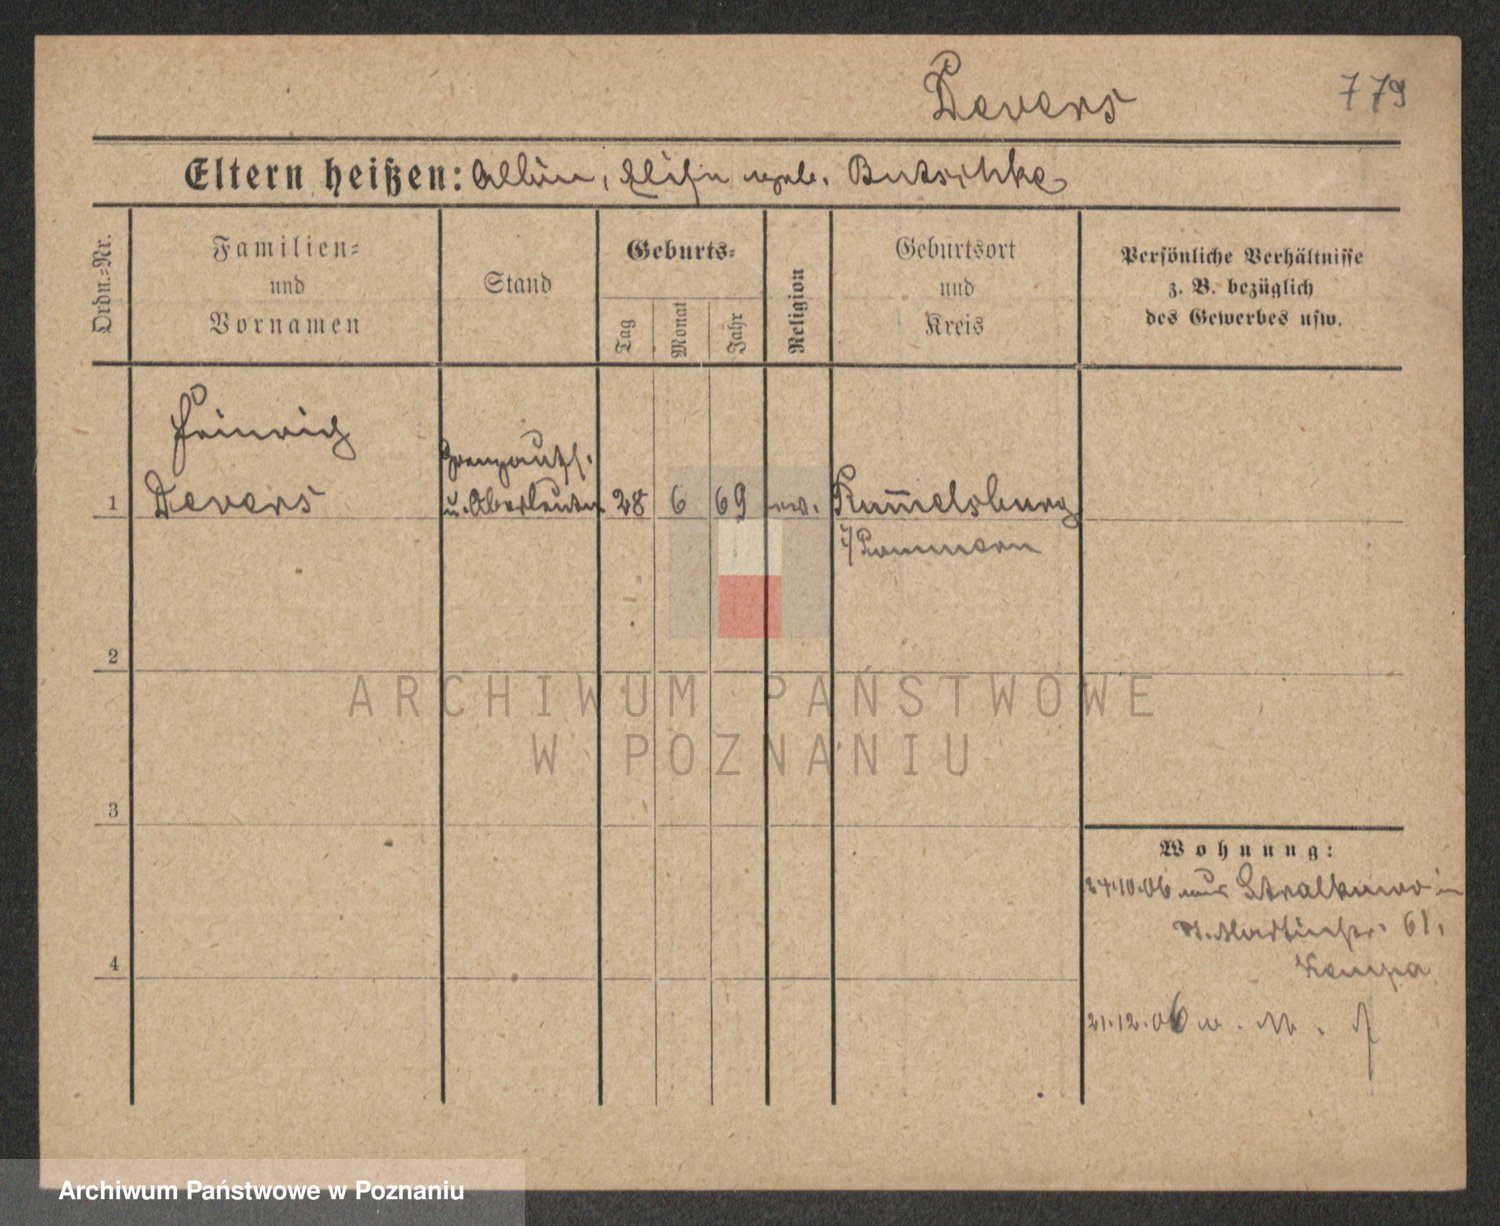 Devers 779
Eltern heißen: Albin, Elise geb. Butschke
Ordn.-Nr.
Familien-
und
Vornamen
Stand
Geburts-
Tag
Monat
Jahr
Religion
Geburtsort
und
Kreis
Persönliche Verhältnisse
z. B. bezüglich
des Gewerbes usw.
Heinrich
Grenzaufs.
1 Devers u. Oberleutn 28 6 69 ev. Rummelsburg
i/Pommern
2
ARCHIWUM PAŃSTWOWE
W POZNANIU
3
Wohnung:
24.10.06 aus
St. Martinstr. 61,
4
Kempa
21.12.06
Archiwum Państwowe w Poznaniu